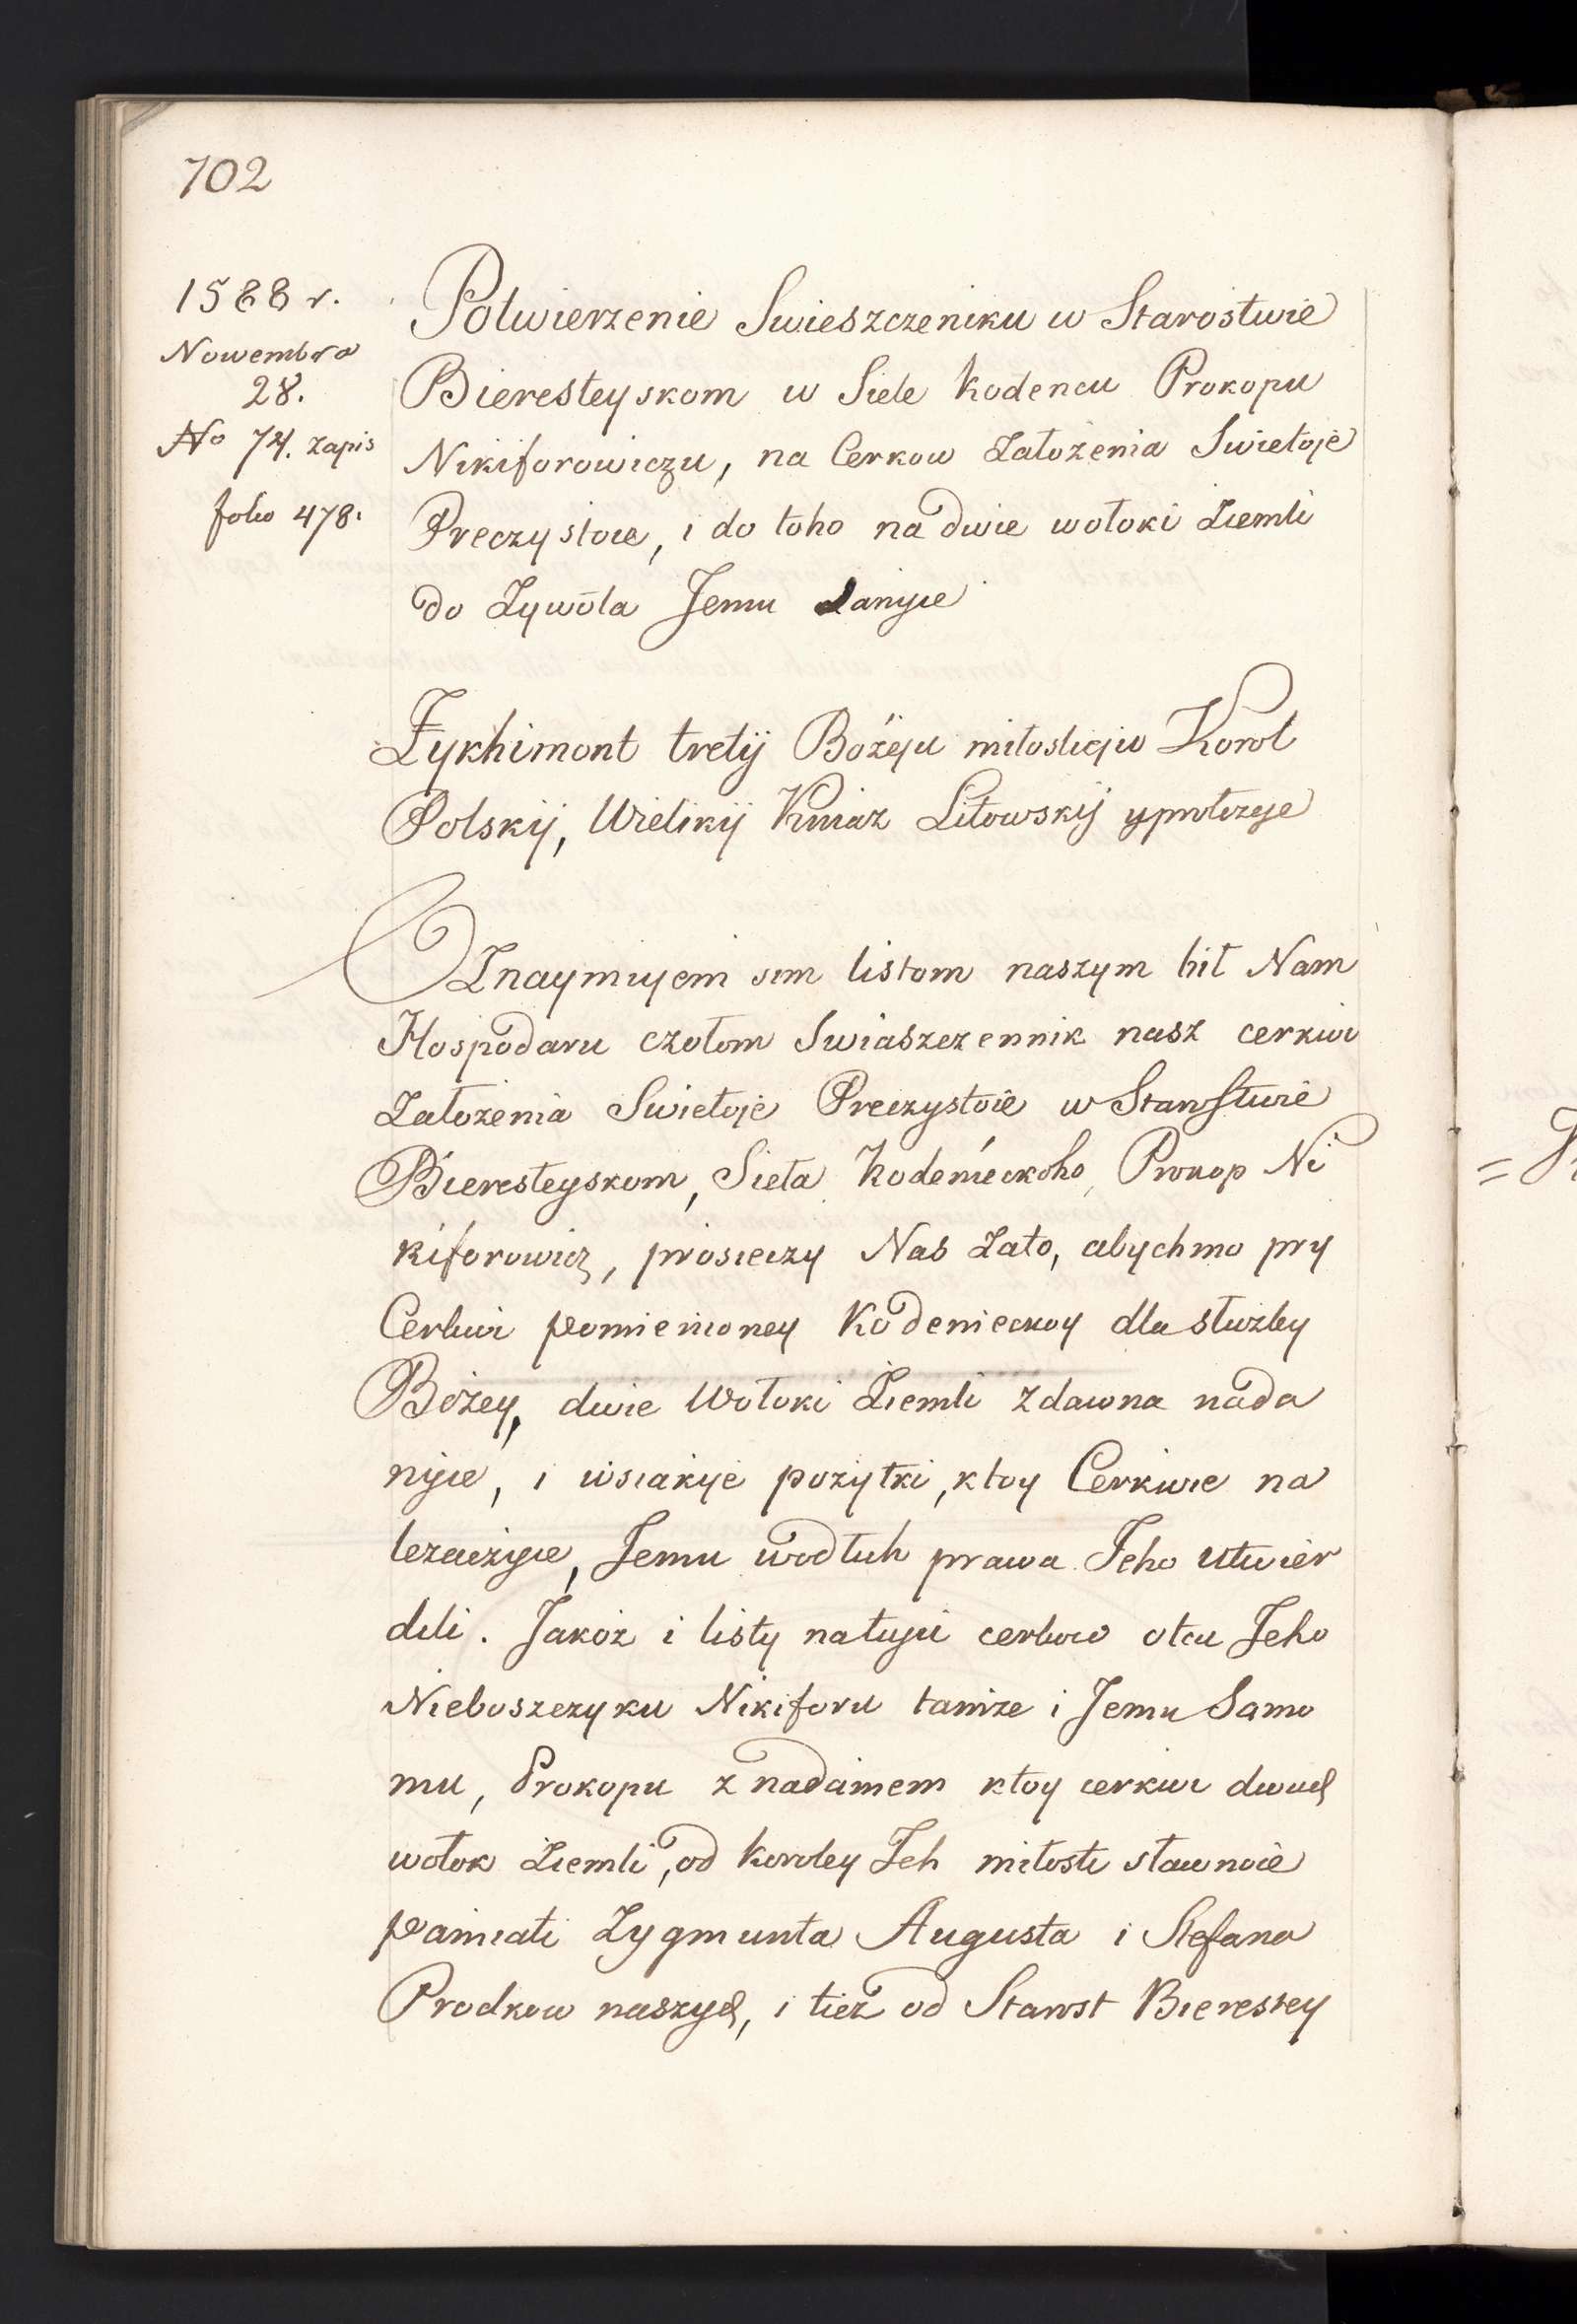 702
1588 r.
Nowembra
28.
No 74. zapis
folio 478.
Potwierzenie Swieszczeniku w Starostwie
Bieresteyskom w Siele Kodencu Prokopu
Nikiforowiczu, na Cerkow Założenia Swietoje
Preczystoie, i do toho na dwie wołoki Ziemli
do Żywota Jemu danyie
Żykhimont tretij Bożeju miłosticju Korol
Polskij, Wielikij Kniaz Litowskij yprotczeje
Oznaymuyem sim listom naszym bił Nam
Hospodaru czołom Swiaszczennik nasz cerkwi
Założenia Swietoje Preczystoie w Starostwie
Bieresteyskom, Sieła Kodenieckoho, Prokop Ni
kiforowicz, prosieczy Nas Zato, abychmo pry
Cerkwi pomienioney Kodenieckoy dla służby
Bożey, dwie Wołoki Ziemli zdawna nada
nyie, i wsiakije pożytki, ktoy Cerkwie na
lezaczyie, Jemu wodłuh prawa Jeho utwier
dili. Jakoż i listy natuju cerkow otcu Jeho
Nieboszczyku Nikiforu także i Jemu Samo
mu, Prokopu z nadaniem ktoy cerkwi dwuch
wołok Ziemli, od Koroley Jeh miłosti sławnoie
pamiati Zygmunta Augusta i Stefana
Prodkow naszych, i tież od Starost Bierestey